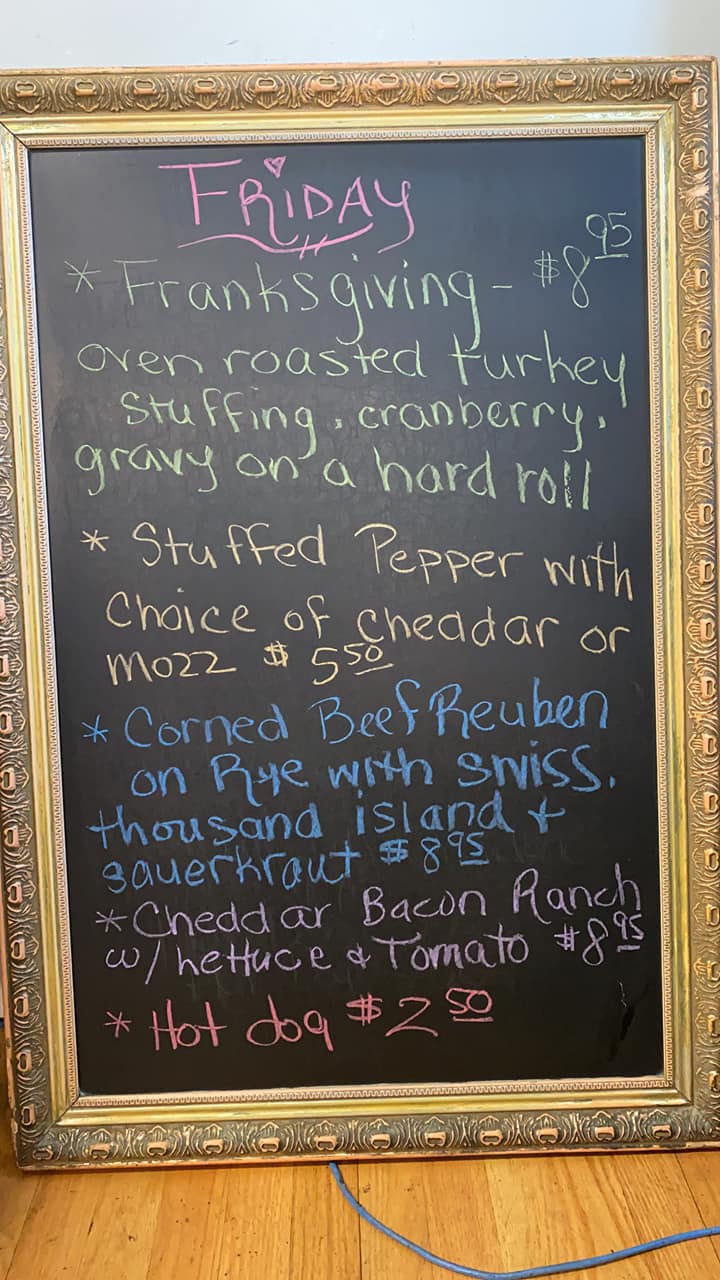 FRIDAY
* Franksgiving - $8 95
oven roasted turkey
stuffing, cranberry,
gravy on a hard roll
* Stuffed Pepper with
Choice of Cheddar or
Mozz $5 50
* Corned Beef Reuben
on Rye with swiss,
thousand island +
sauerkraut $8 95
* Cheddar Bacon Ranch
w/ Lettuce & Tomato $8 95
* Hot dog $2 50